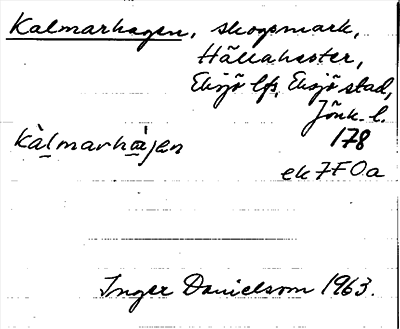 Kalmarhagen, skogsmark,
Hällahester,
Eksjö lfs, Eksjö stad,
Jönk. l.
kàl̲marhàgen 178
ek 7F0a
Inger Danielsson 1963.